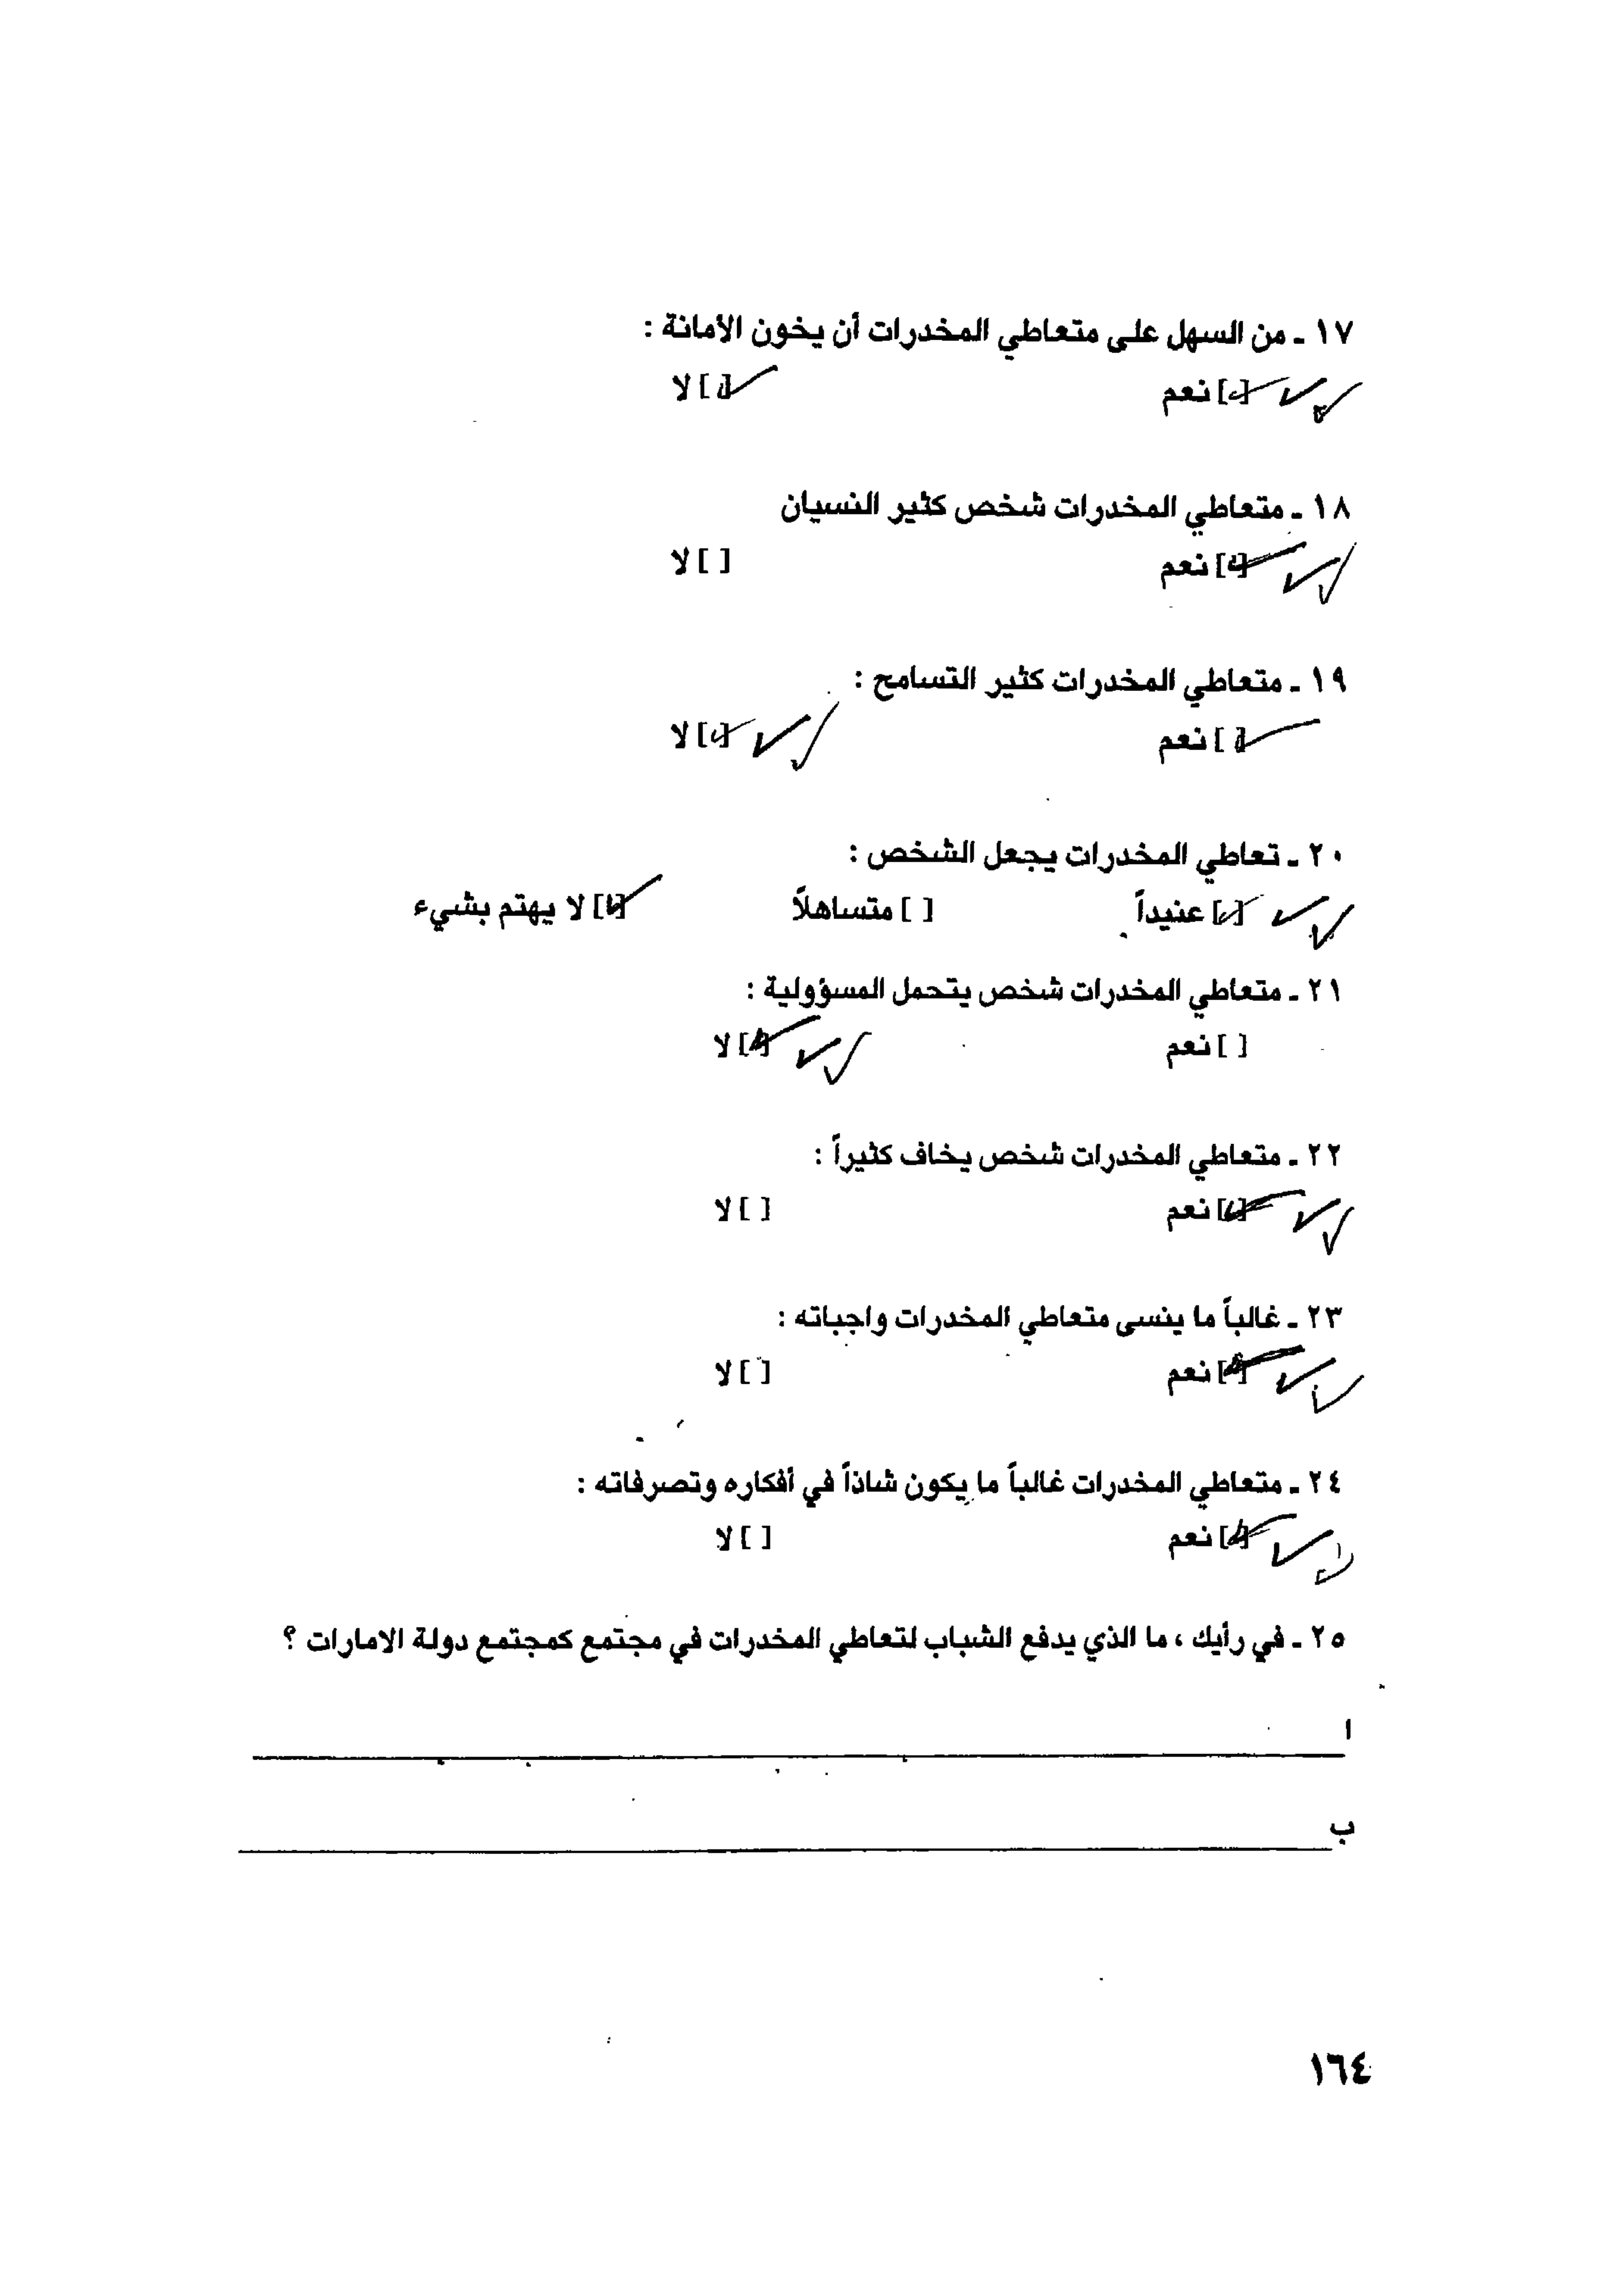 ١٧ ـ من السهل على متعاطي المخدرات أن يخون الأمانة :
[✓] نعم [✓] لا
١٨ ـ متعاطي المخدرات شخص كثير النسيان
[✓] نعم [ ] لا
١٩ ـ متعاطي المخدرات كثير التسامح :
[✓] نعم [✓] لا
٢٠ ـ تعاطي المخدرات يجعل الشخص :
[✓] عنيداً [ ] متساهلاً [✓] لا يهتم بشيء
٢١ ـ متعاطي المخدرات شخص يتحمل المسؤولية :
[ ] نعم [✓] لا
٢٢ ـ متعاطي المخدرات شخص يخاف كثيراً :
[✓] نعم [ ] لا
٢٣ ـ غالباً ما ينسى متعاطي المخدرات واجباته :
[✓] نعم [ ] لا
٢٤ ـ متعاطي المخدرات غالباً ما يكون شاذاً في أفكاره وتصرفاته :
[✓] نعم [ ] لا
٢٥ ـ في رأيك ، ما الذي يدفع الشباب لتعاطي المخدرات في مجتمع كمجتمع دولة الامارات ؟
ا
ب
١٦٤